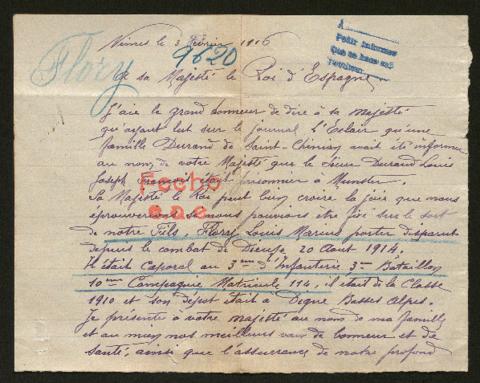 Nimes le 3 Février 1916
9620
Flory
A
Pedir informes
Que se hace así
A sa Majesté le Roi d'Espagne
J'ai le grand honneur de dire à sa Majesté
qu'ayant lut sur le journal L'Eclair qu'une
famille Durand de Saint-Chinian avait été informée
au nom de votre Majesté que le Sieur Durand Louis
Joseph François était prisonnier à Munster.
Fecho
Sa Majesté le Roi peut bien croire la joie que nous
éprouverions si nous pouvions etre fixé sur le sort
de notre Fils, Floret Louis Marius porter disparut
depuis le combat de Dieuze 20 Aout 1914.
Il était Caporal au 3me d'Infanterie 3me Bataillon
10me Compagnie Matricule 114, il était de la Classe
1910 et son depot était à Digne Basses Alpes.
Je présente à votre majesté au nom de ma famille
et au mien nos meilleurs vœux de bonheur et de
santé, ainsi que l'assurance de notre profond